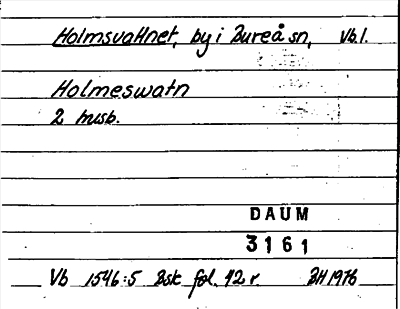 Holmsvattnet, by i Bureå sn, Vb.l.
Holmeswatn
2 husb.
DAUM
3161
Vb 1546:5 Bsk fol. 42 r. BH 1976